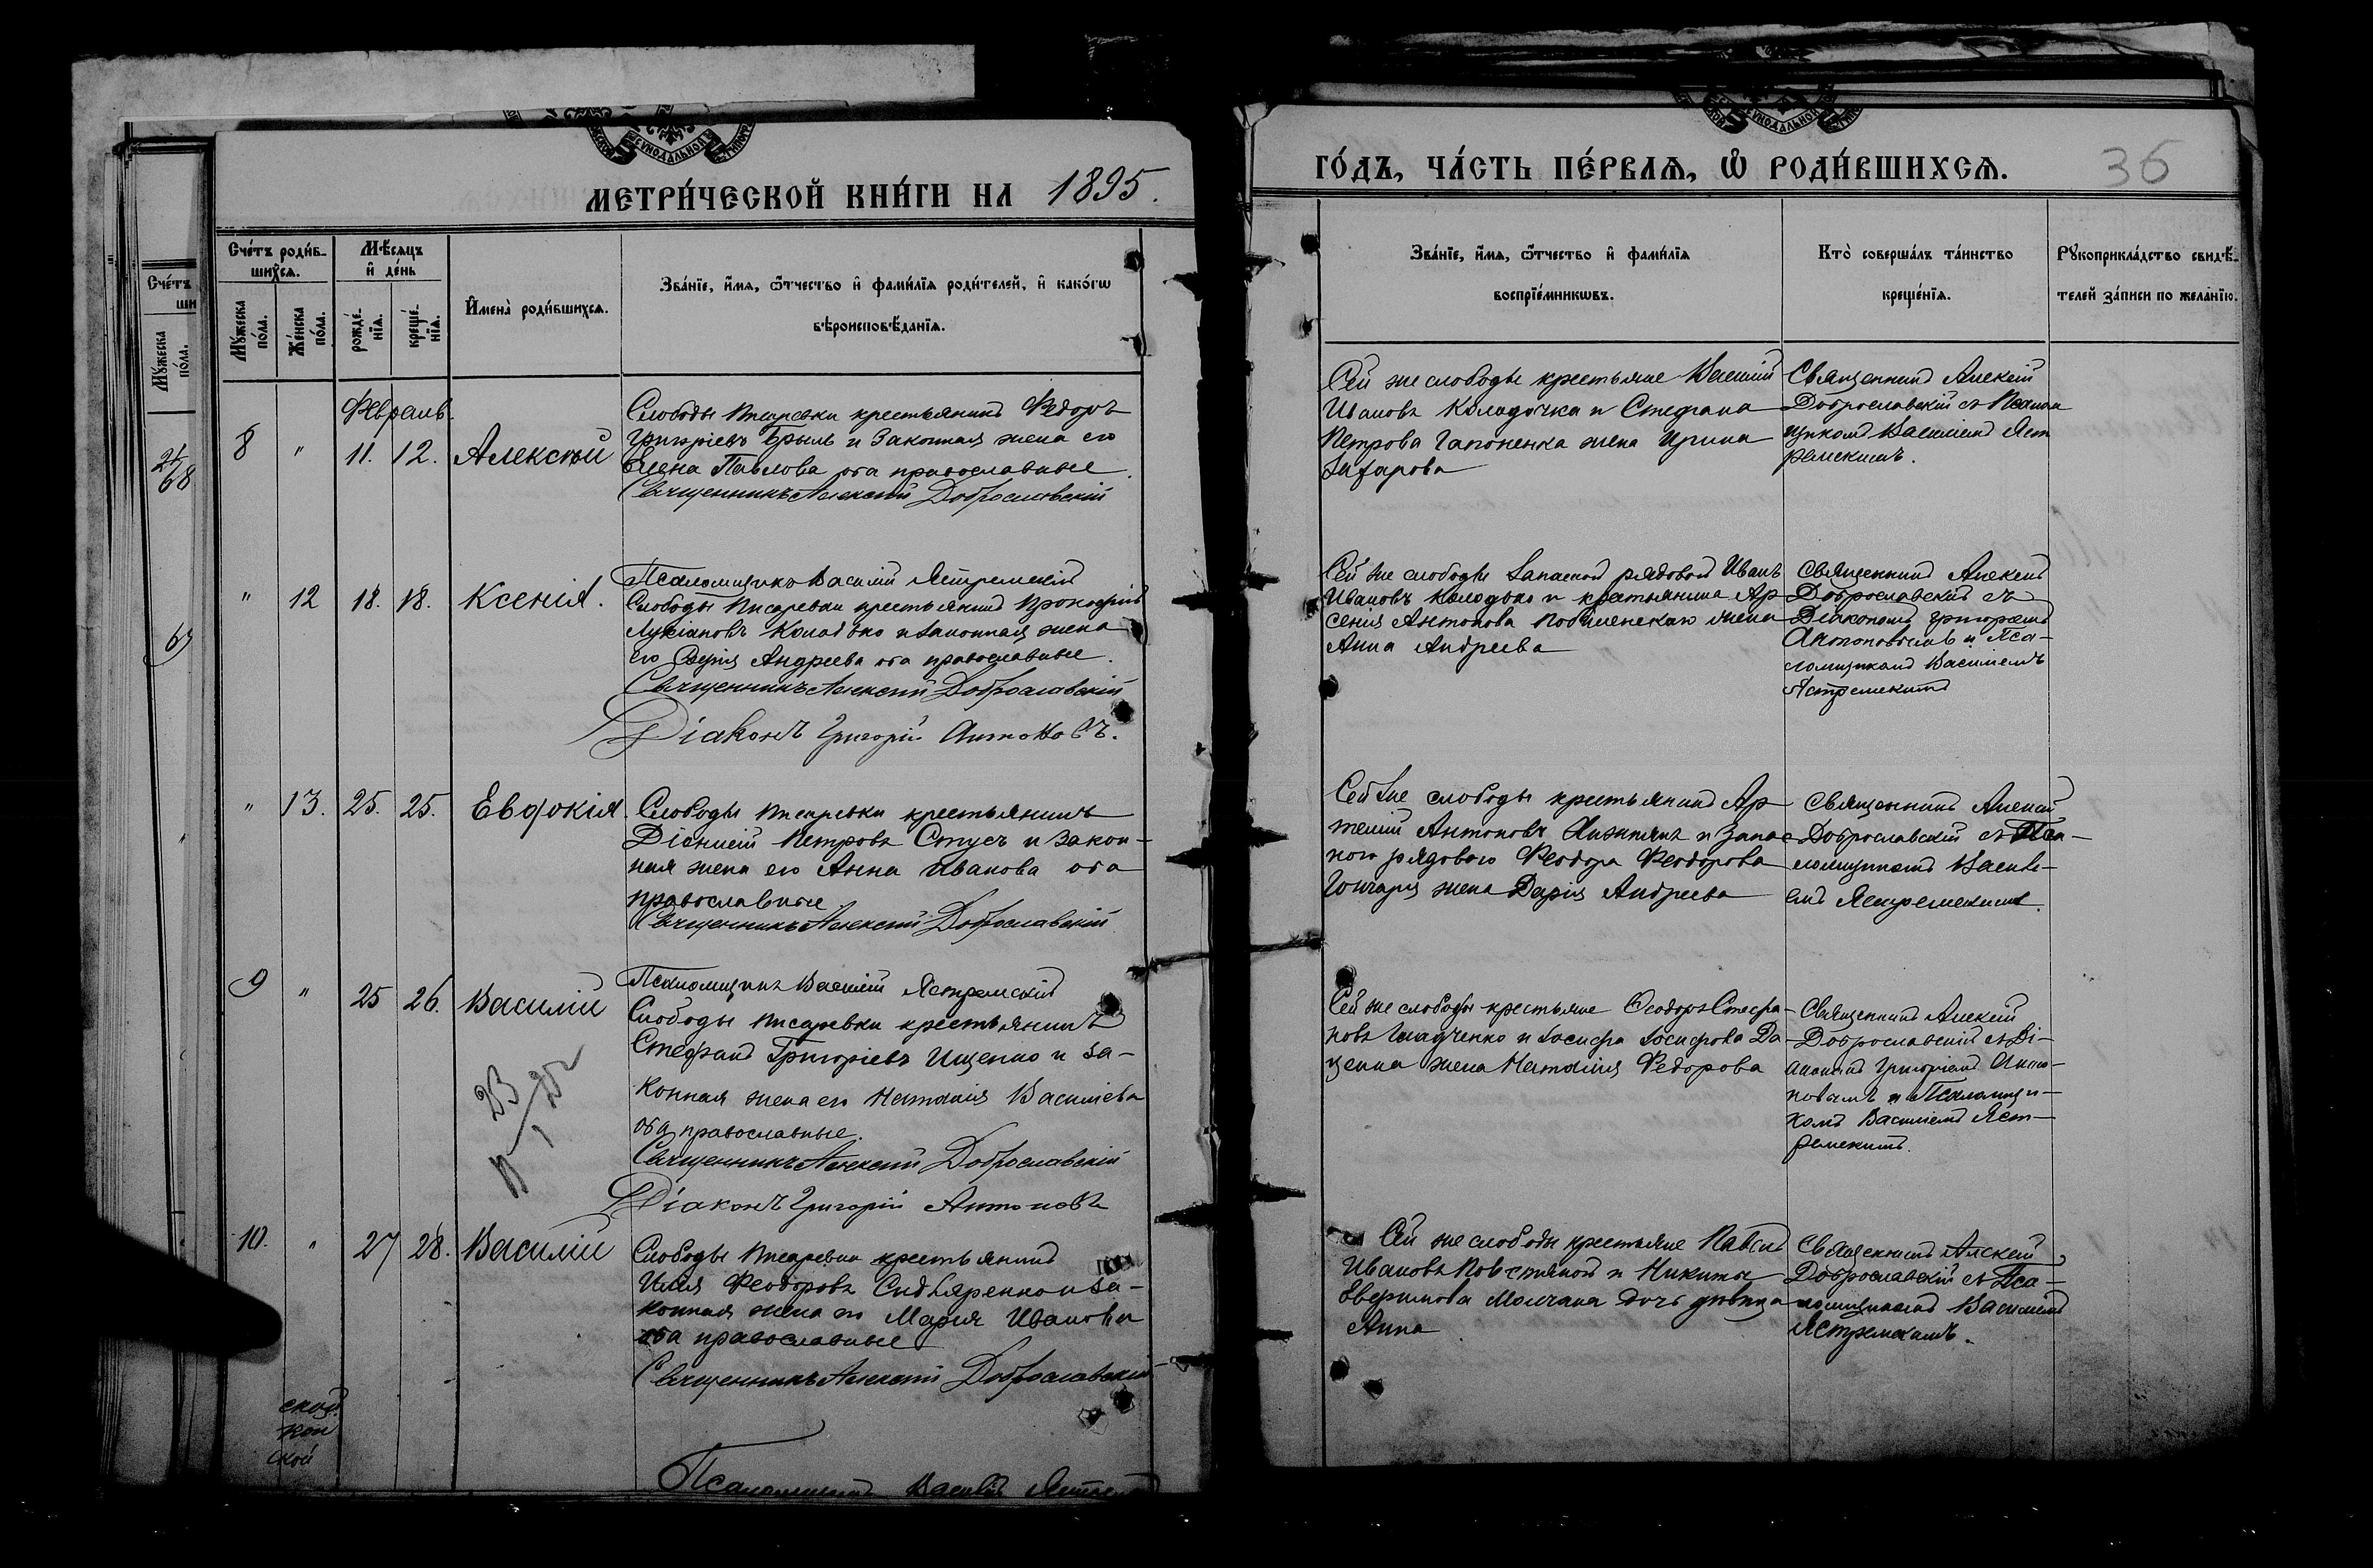 МЕТРИ́ЧЕСКОЙ КНИ́ГИ НА 1895.
Сче́тъ роди́в-
шихсѧ.
Мѣ́сѧцъ
и҆ де́нь
Мꙋ́жеска
по́ла.
Же́нска
по́ла.
рожде́-
нїѧ.
креще́-
нїѧ.
И҆мена̀ роди́вшихсѧ.
Зва́нїе, и҆́мѧ, ѻ҆́тчество и҆ фами́лїѧ роди́телей, и҆ како́гѡ
вѣроисповѣ́данїѧ.
Февраль.
8 " 11. 12. Алексѣй
Слободы Писаревки крестьянинъ Федоръ
Григорiевъ Брыль и законная жена его
Елена Павлова оба православные.
Священникъ Алексiй Доброславскiй
Псаломщикъ Василiй Ястремскiй
" 12 18. 18. Ксенiя.
Слободы Писаревки крестьянинъ Прокофiй
Лукiановъ Колодько и законная жена
его Андреева оба православные.
Священникъ Алексiй Доброславскiй
Дiаконъ Григорiй Антоновъ.
" 13. 25. 25. Евдокiя.
Слободы Писаревки крестьянинъ
Дiонисiй Петровъ Стусъ и закон-
ная жена его Анна Иванова оба
православные.
Священникъ Алексiй Доброславскiй
Псаломщикъ Василiй Ястремскiй
9 " 25 26. Василiй
Слободы Писаревки крестьянинъ
Стефанъ Григорiевъ Ищенко и за-
конная жена его Наталiя Василiева
оба православные.
Священникъ Алексiй Доброславскiй
Дiаконъ Григорiй Антоновъ
10. " 27 28. Василiй
Слободы Писаревки крестьянинъ
Илiя Феодоровъ и за-
конная жена его Марiя Иванова
оба православные
Священникъ Алексiй Доброславскiй
Псаломщикъ Василiй
ГО́ДЪ, ЧА́СТЬ ПЕ́РВАѦ, Ѡ҆ РОДИ́ВШИХСѦ.
36
Зва́нїе, и҆́мѧ, ѻ҆́тчество и҆ фами́лїѧ
воспрїе́мникѡвъ.
Кто̀ соверша́лъ та́инство
креще́нїѧ.
Рꙋкоприкла́дство свидѣ́-
телей за́писи по жела́нїю.
Сей же слободы крестьяне Василiй
Ивановъ и Стефана
Петрова Гапоненка жена Ирина
Захарова
Священникъ Алексiй
Доброславскiй съ Псалом
щикомъ Василiемъ Яст
ремскимъ.
Сей же слободы запасной рядовой Иванъ
Ивановъ Колодько и крестьянина Ар
сенiя Антонова жена
Анна Андреева
Священникъ Алексiй
Доброславскiй съ
Дiакономъ Григорiемъ
Антоновымъ и Пса-
ломщикомъ Василiемъ
Ястремскимъ
Сей же слободы крестьянинъ Ар
темiй Антоновъ и запас
ного рядового Феодора Феодорова
Гончара жена Дарiя Андреева
Священникъ Алексiй
Доброславскiй съ Пса-
ломщикомъ Василi-
емъ Ястремскимъ.
Сей же слободы крестьяне Ѳеодоръ Стефа-
новъ Гладченко и Iосифа Iосифова Да
ценка жена Наталiя Федорова
Священникъ Алексiй
Доброславскiй съ Дi-
акономъ Григорiемъ Анто-
новымъ и Псаломщи-
комъ Василiемъ Яст-
ремскимъ.
Сей же слободы крестьяне Павелъ
Ивановъ и Никиты
Аверкиева Молчана дочь дѣвица
Анна
Священникъ Алексiй
Доброславскiй съ Пса-
ломщикомъ Василiемъ
Ястремскимъ.